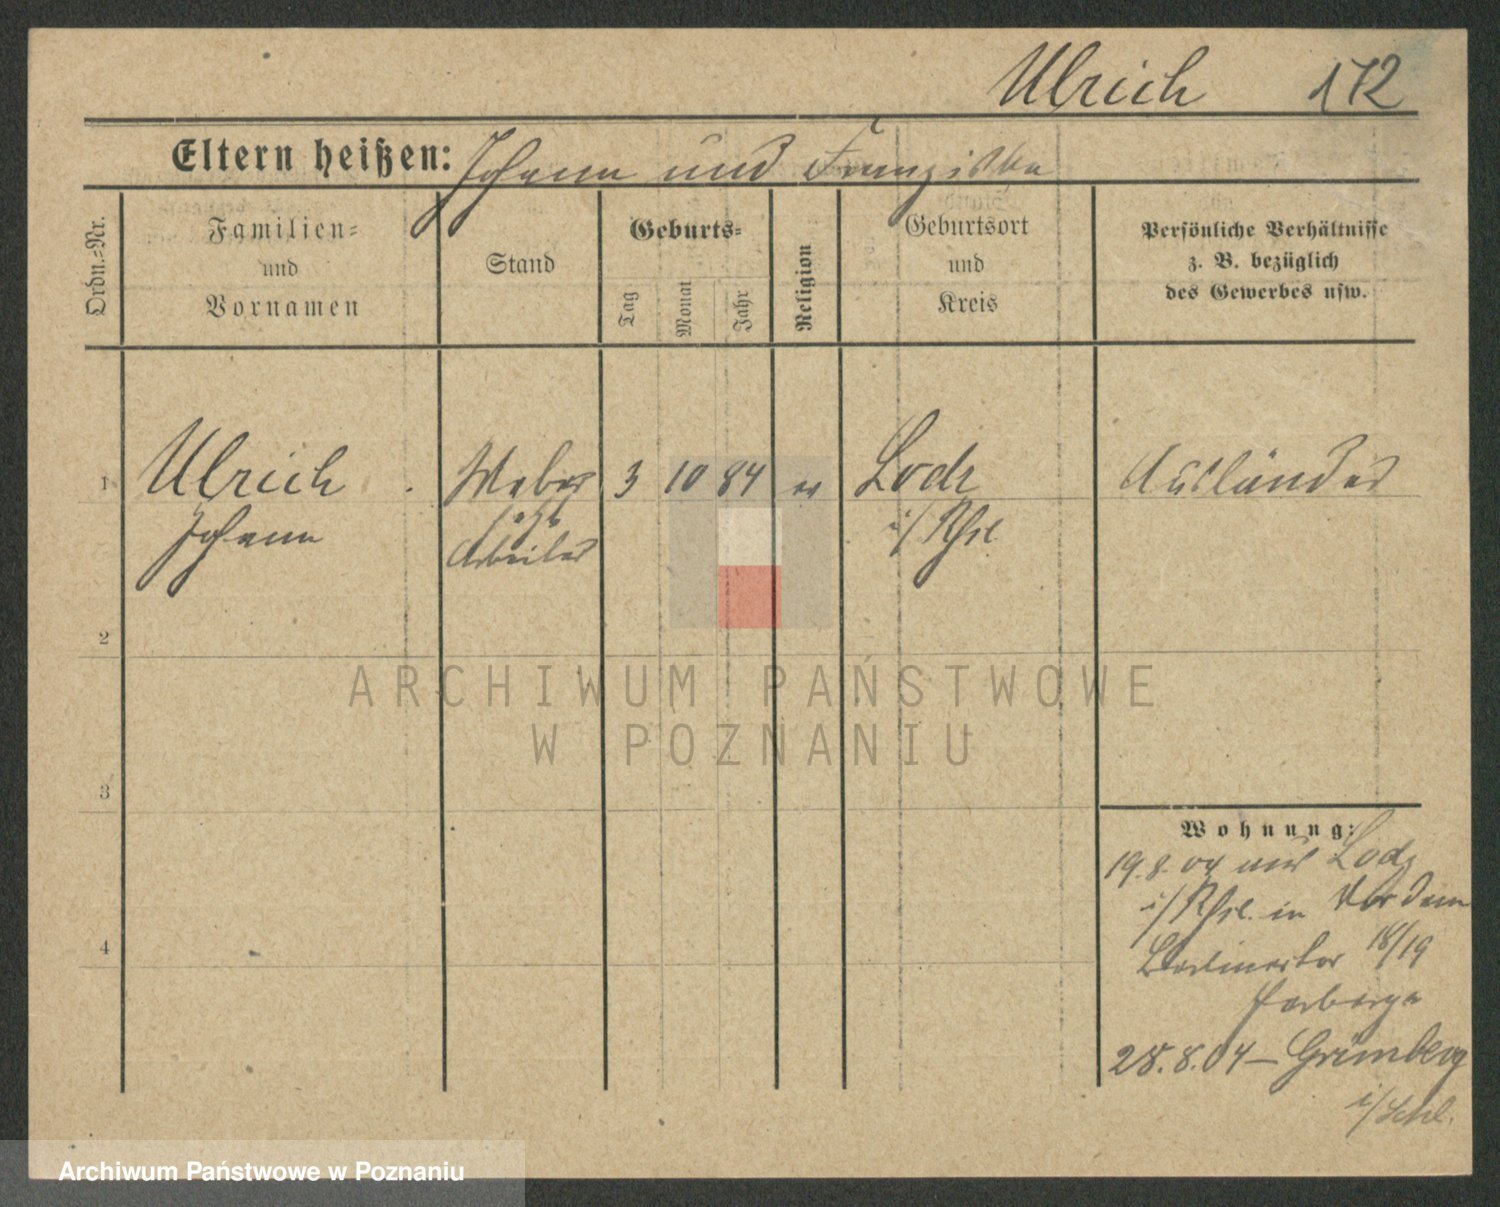 Ulrich 172
Eltern heißen: Johann und Franziska
Ordn.-Nr.
Familien-
und
Vornamen
Stand
Geburts-
Tag
Monat
Jahr
Religion
Geburtsort
und
Kreis
Persönliche Verhältnisse
z. B. bezüglich
des Gewerbes usw.
1 Ulrich Weber 3 10 84 ev Lodz Ausländer
Johann jetzt i/Russl.
Arbeiter
2
ARCHIWUM PAŃSTWOWE
W POZNANIU
3
Wohnung:
19.8.04 aus Lodz
i/Russl. in Vor dem
Berlinertor 18/19
4
Herberge
28.8.04 – Grünberg
i/Schl.
Archiwum Państwowe w Poznaniu